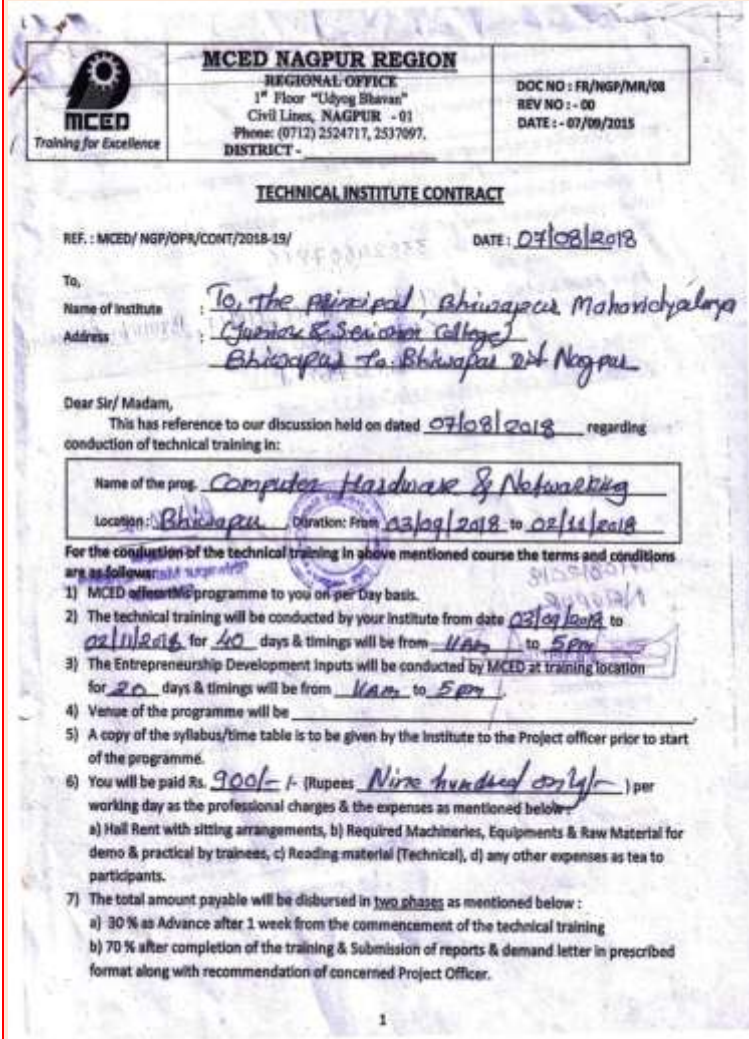 MCED
Training for Excellence
MCED NAGPUR REGION
REGIONAL OFFICE
1st Floor "Udyog Bhavan"
Civil Lines, NAGPUR - 01
Phone: (0712) 2524717, 2537097.
DISTRICT -
DOC NO : FR/NGP/MR/08
REV NO : - 00
DATE : - 07/09/2015
TECHNICAL INSTITUTE CONTRACT
REF. : MCED/ NGP/OPR/CONT/2018-19/ DATE : 07/08/2018
To,
Name of Institute : To, The Principal, Bhiwapur Mahavidyalaya
Address : (Junior & Senior College)
Bhiwapur Ta. Bhiwapur Dist Nagpur
Dear Sir/ Madam,
This has reference to our discussion held on dated 07/08/2018 regarding
conduction of technical training in:
Name of the prog. Computer Hardware & Networking
Location : Bhiwapur Duration: From 03/09/2018 to 02/11/2018
For the conduction of the technical training in above mentioned course the terms and conditions
are as follows:
1) MCED offers this programme to you on per Day basis.
2) The technical training will be conducted by your institute from date 03/09/2018 to
02/11/2018 for 40 days & timings will be from 11Am to 5pm
3) The Entrepreneurship Development Inputs will be conducted by MCED at training location
for 20 days & timings will be from 11Am to 5pm.
4) Venue of the programme will be
5) A copy of the syllabus/time table is to be given by the Institute to the Project officer prior to start
of the programme.
6) You will be paid Rs. 900/- /- (Rupees Nine hundred only/- ) per
working day as the professional charges & the expenses as mentioned below :
a) Hall Rent with sitting arrangements, b) Required Machineries, Equipments & Raw Material for
demo & practical by trainees, c) Reading material (Technical), d) any other expenses as tea to
participants.
7) The total amount payable will be disbursed in two phases as mentioned below :
a) 30 % as Advance after 1 week from the commencement of the technical training
b) 70 % after completion of the training & Submission of reports & demand letter in prescribed
format along with recommendation of concerned Project Officer.
1